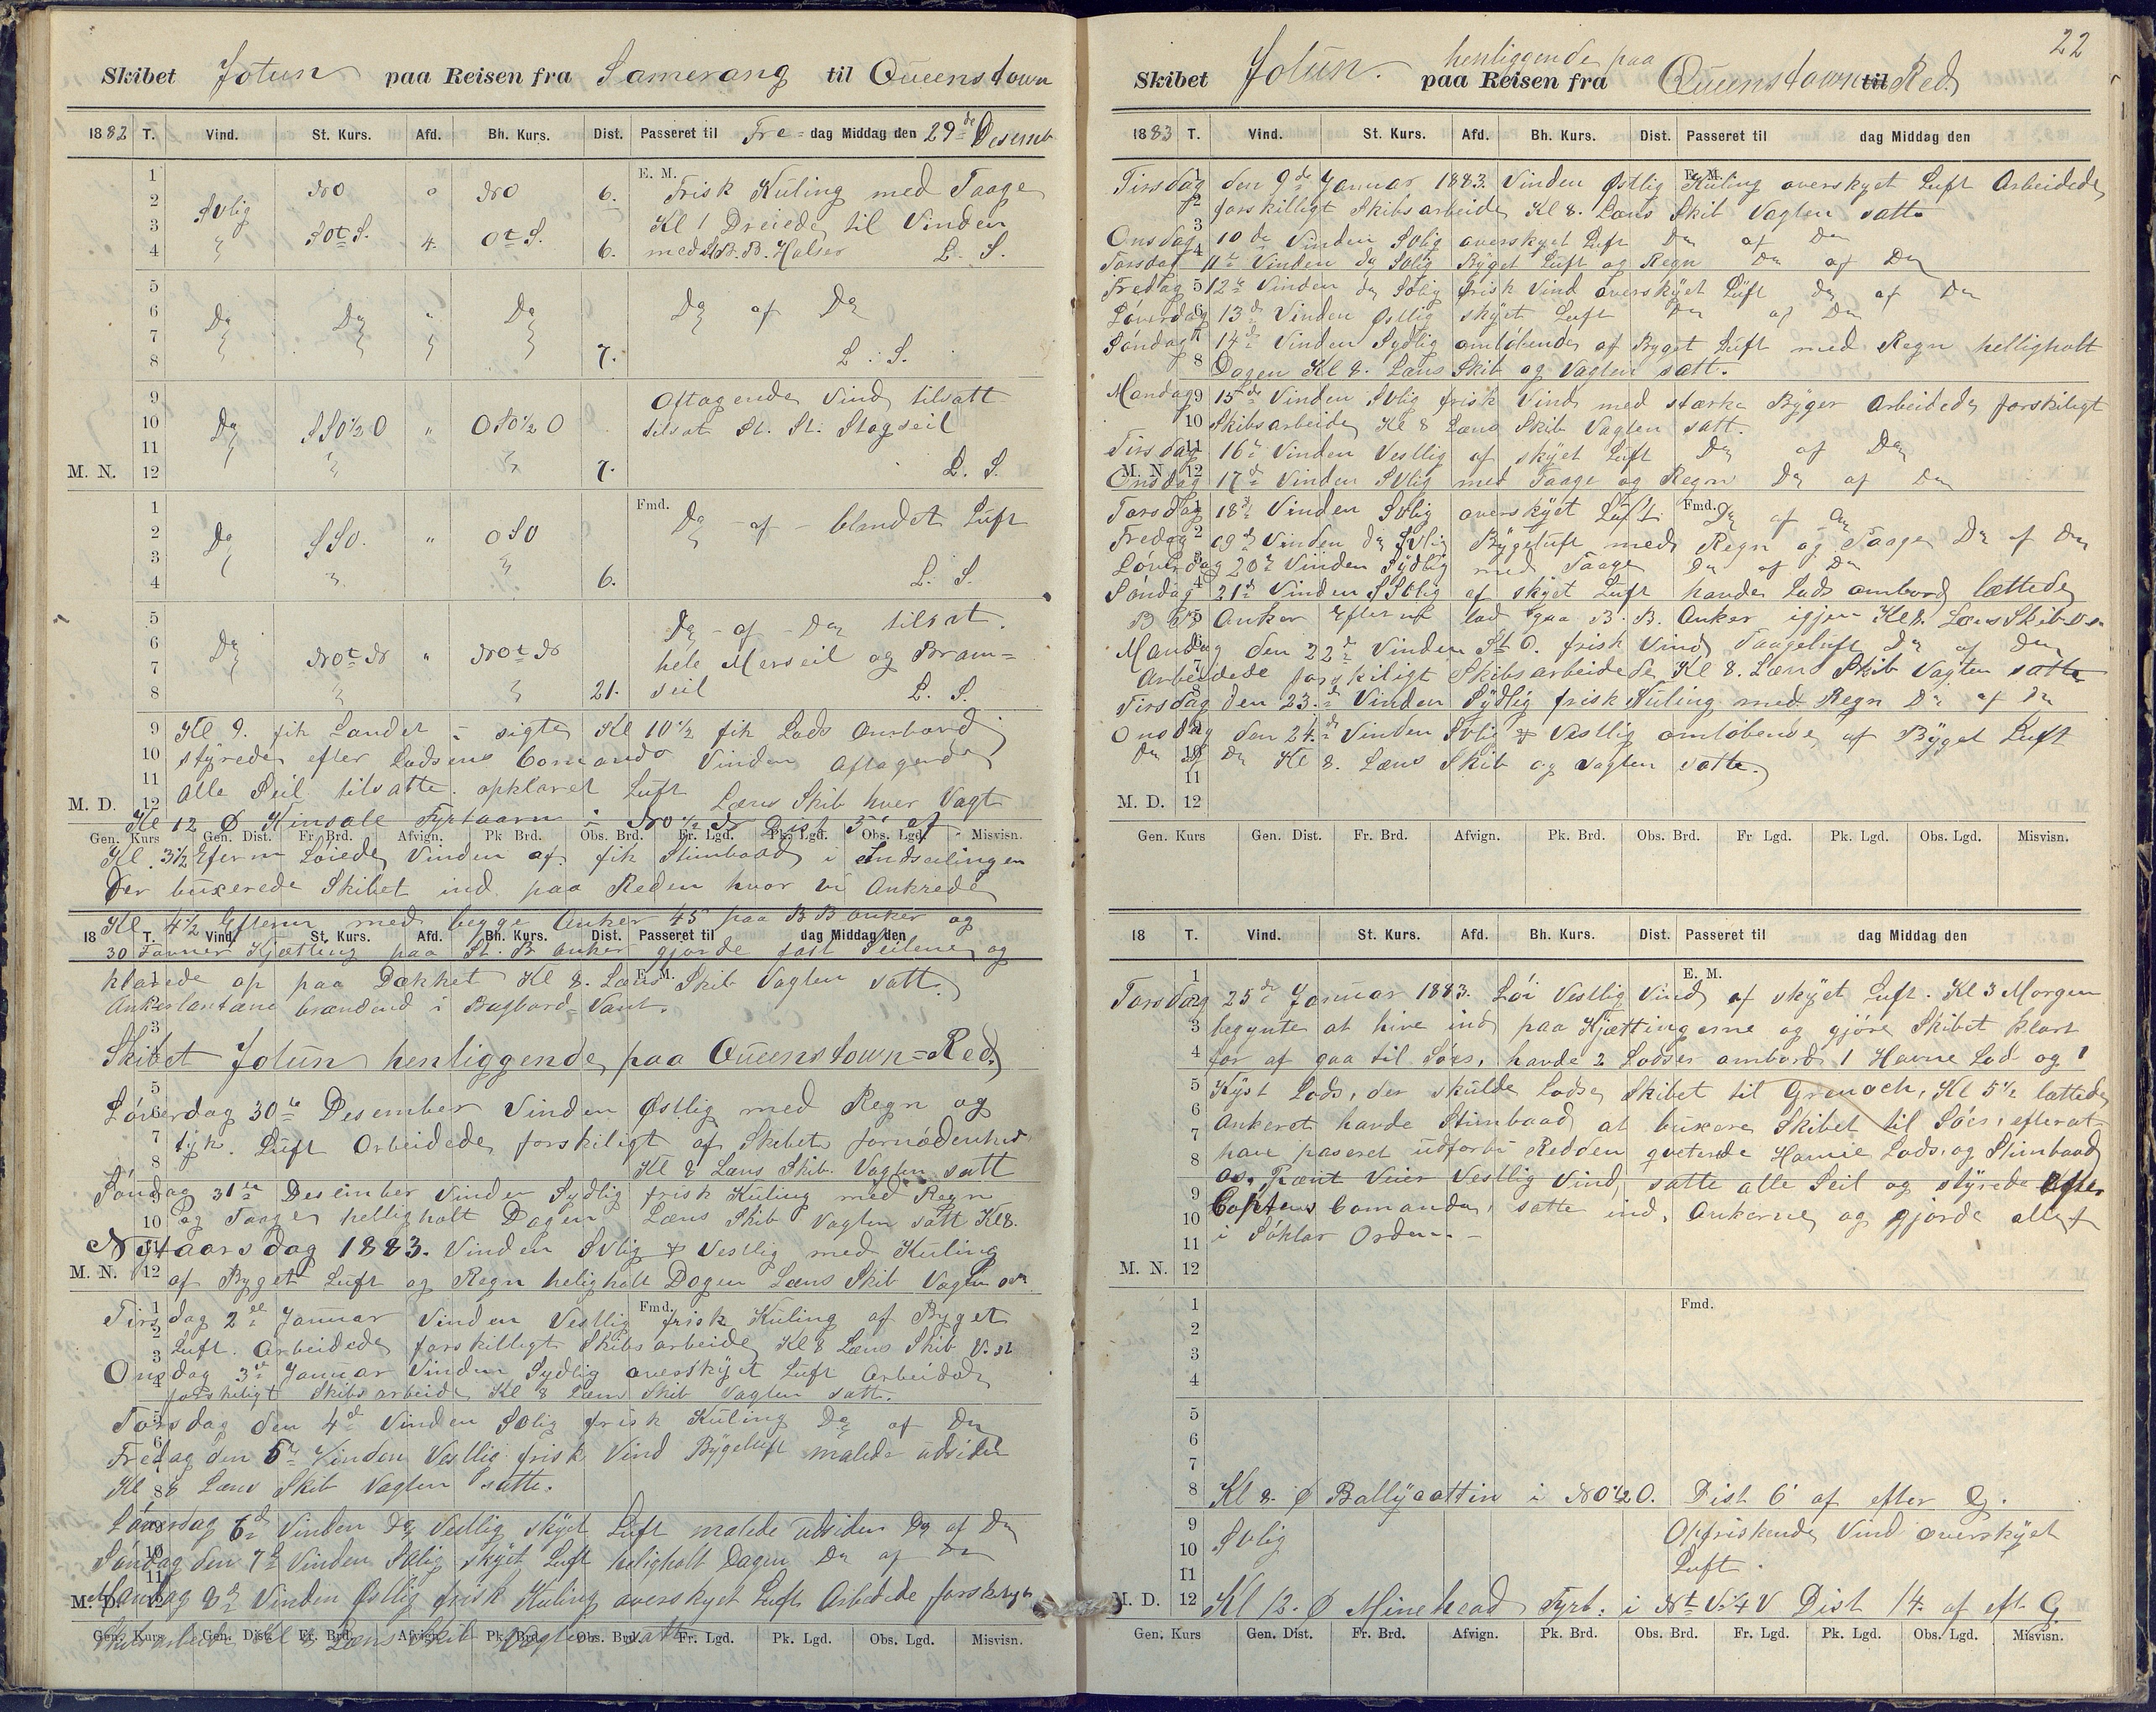 Skibet Jotun paa Reisen fra Samerang til Queenstown
1882 T. Vind. St. Kurs. Afd. Bh. Kurs. Dist. Passeret til Fre=dag Middag den 29de Desemb
E. M.
1 2 NO " NO 6. Frisk Kuling med Taage
SVlig Kl 1 Dreiede til Vinden
3 4 SOt S. 4. Ot S. 6. med B. B. Halser L. S.
5 6 Do Do " Do Do af Do
7 8 7. L. S.
9 Aftagende Vind tilsatt
10 Do SSO½O " OSO½O tilsat St. St. Stagseil
11
M. N. 12 7. L. S.
1 Fmd. Do - af - blandet Luft
2 Do SSO. " OSO
3
4 6. L. S.
5 Do - af - Do tilsat.
6 Do NOt N " NOt N hele Merseil og Bram=
7
8 21. seil L. S.
9 Kl 9. fik Landet i sigte Kl 10½ fik Lods Ombord
10 styrede efter Lodsens Comando Vinden Aftagende
11 alle Seil tilsatte. opklaret Luft Læns Skib hver Vagt
M. D. 12 Kl 12 Kinsale Fyrtaarn i NO½N Dist 5' af
Gen. Kurs Gen. Dist. Fr. Brd. Afvign. Pk Brd. Obs. Brd. Fr. Lgd. Pk. Lgd. Obs. Lgd. Misvisn.
Kl. 3½ Efterm Løiede Vinden af. fik Stimbaad i Indseilingen
der buxerede Skibet ind paa Reden hvor vi Ankrede
Kl 4½ Efterm med begge Anker 45 paa B B anker og
18 T. Vind. St. Kurs. Afd. Bh. Kurs. Dist. Passeret til dag Middag den
30 Favner Kjætting paa St. B anker gjorde fast Seilene og
klarede op paa Dækket Kl 8. Læns Skib Vagten satt.
E. M.
Ankerlantærne brændend i Bagbord=Vant.
Skibet Jotun henliggende paa Queenstown=Red.
Løverdag 30te Desember Vinden Østlig med Regn og
tyk. Luft Arbeidede forskiligt af Skibets fornødenhed
Kl 8 Læns Skib. Vagten satt
Søndag 31te Desember Vinden Sydlig frisk Kuling med Regn
og Taage helligholt Dagen Læns Skib Vagten satt Kl 8.
Nytaarsdag 1883. Vinden SVlig & Vestlig med Kuling
M. N. 12 af Byget Luft og Regn heligholt Dagen Læns Skib Vagten
Fmd.
Tirsdag 2de Januar Vinden Vestlig frisk Kuling af Byget
Luft. Arbeidede forskilligt Skibsarbeide Kl 8 Læns Skib V. st
Onsdag 3de Januar Vinden Sydlig overskyet Luft Arbeidede
forskeligt Skibsarbeide Kl 8 Læns Skib Vagten satt.
Torsdag den 4de Vinden SOlig frisk Kuling Do af Do
Fredag den 5te Vinden Vestlig frisk Vind Bygeluft malede udsiden
Kl 8 Læns Skib Vagten satte.
Løverdag 6te Vinden Do Vestlig skyet Luft malede udsiden Do af Do
Søndag den 7de Vinden skyet Luft heligholt Dagen Do af Do
M. D. Mandag 8de Vinden Østlig frisk Kuling overskyet Luft Arbeidede forskeligt
Skibsarbeide Kl 8 Læns Skib Vagten satt
Gen. Kurs Gen. Dist. Fr. Brd. Afvign. Pk. Brd. Obs. Brd. Fr. Lgd. Pk. Lgd. Obs. Lgd. Misvisn.
22
Skibet Jotun. henliggende paa paa Reisen fra Queenstown til Red.
1883 T. Vind. St. Kurs. Afd. Bh. Kurs. Dist. Passeret til dag Middag den
E. M.
Tirsdag den 9de Januar 1883. Vinden Østlig Kuling overskyet Luft Arbeidede
forskilligt Skibsarbeide Kl 8. Læns Skib Vagten satte
Onsdag 10de Vinden SVlig overskyet Luft Do af Do
Torsdag 11te Vinden do SVlig Byget Luft og Regn Do af Do
Fredag 12te Vinden do SVlig frisk Vind overskyet Luft do af Do
Løverdag 13de Vinden Østlig skyet Luft Do af Do
Søndag 14de Vinden Sydlig omløbende af Byget Luft med Regn helligholt
Dagen Kl 8. Læns Skib og Vagten satt.
Mandag 15de Vinden SVlig frisk Vind med stærke Byger Arbeidede forskiligt
Skibsarbeide Kl 8 Læns Skib Vagten satt.
Tirsdag 16te Vinden Vestlig af skyet Luft Do af Do
M. N. 12
Onsdag 17de Vinden SVlig med Taage og Regn Do af Do
Torsdag 18de Vinden SVlig overskyet Luft. Fmd. Do af Do
Fredag 19de Vinden do SVlig Bygeluft med Regn og Taage Do af Do
Løverdag 20de Vinden Sydlig med Taage Do af Do
Søndag 21de Vinden SSVlig af skyet Luft havde Lods ombord lættede
B B Anker Efter lod gaa B. B. Anker igjen Kl 8. Læns Skib
Mandag den 22de Vinden St O. frisk Vind Taageluft Do af Do
Arbeidede forskiligt Skibsarbeidede Kl 8. Læns Skib Vagten satte
Tirsdag den 23de Vinden Sydlig frisk Kuling med Regn Do af Do
Onsdag den 24de Vinden SVlig & Vestlig omløbende af Byget Luft
Do af Do Kl 8. Læns Skib og vagten satte.
11
M. D. 12
Gen. Kurs Gen. Dist. Fr. Brd. Afvign. Pk. Brd. Obs. Brd. Fr Lgd. Pk. Lgd. Obs. Lgd. Misvisn.
18 T. Vind. St. Kurs. Afd. Bh. Kurs. Dist. Passeret til dag Middag den
E. M.
Torsdag 25de Januar 1883. Løi Vestlig Vind af skyet Luft. Kl 3 Morgen
begynte at hive ind paa Kjættingerne og gjøre Skibet klart
for af gaa til Søes, havde 2 Lodser ombord 1 Havne Lods og 1
Kyst Lods, der skulde Lodse Skibet til Grenoch, Kl 5½ lættede
Ankeret havde Stimbaad at buxere Skibet til Søes, efterat
have paseret udforbi Redden qveterede Havne Lods og Stimbaad
os. Pænt Veier Vestlig Vind, satte alle Seil og styrede efter
Captens Comando, satte ind, Ankerne og gjorde allet
i Søklar Orden. -
M. N. 12
1 Fmd.
2
3
4
5
6
7
8 Kl 8. Ballycottin i NO½O. Dist 6' af efter G.
9 SVlig Opfriskende Vind overskyet
10 Luft.
11
M. D. 12 Kl 12. Minehead Fyrt. i Nt V¼V Dist 14. af eft. G.
Gen. Kurs Gen. Dist. Fr. Brd. Afvign. Pk. Brd. Obs. Brd. Fr. Lgd. Pk. Lgd. Obs. Lgd. Misvisn.